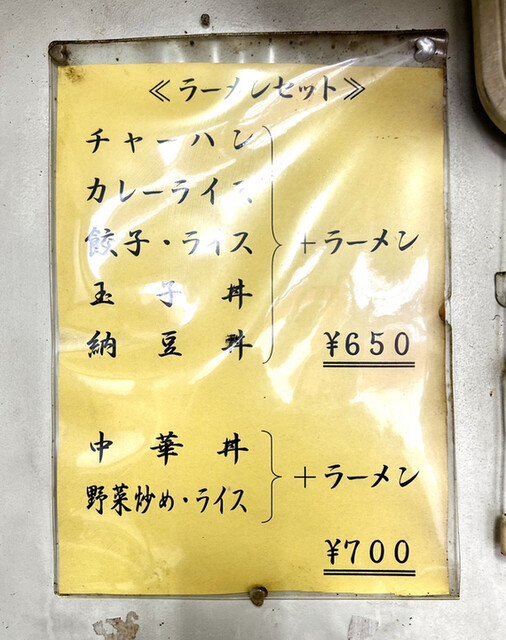 ≪ラーメンセット≫
チャーハン
カレーライス
餃子・ライス
玉子丼
納豆丼
+ラーメン
¥650
中華丼
野菜炒め・ライス
+ラーメン
¥700